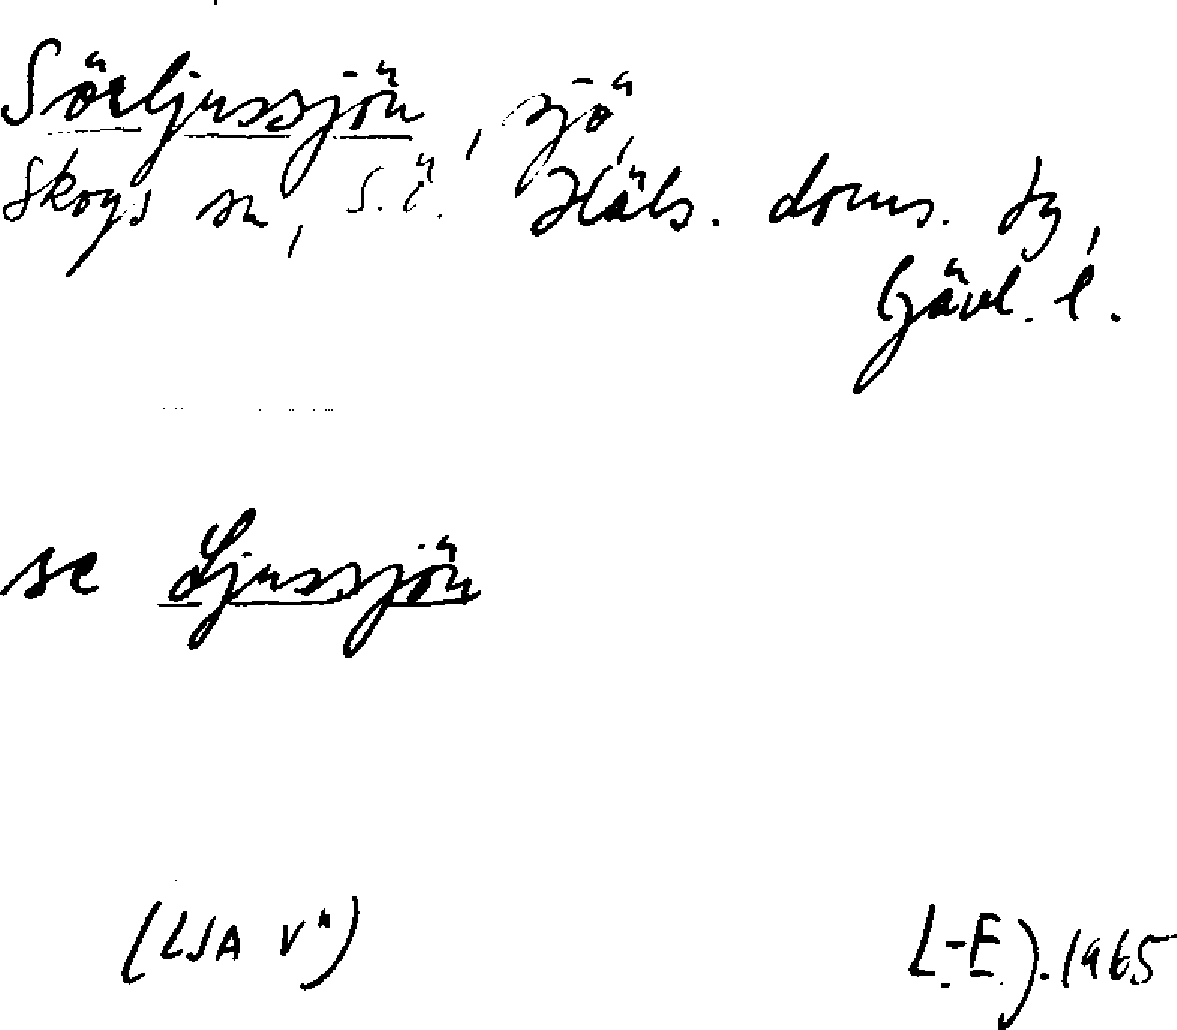 Sörljussjön, sjö,
Skogs sn, S.Ö. Häls. doms. tg,
Gävl. l.
se Ljussjön
(LSA V")
L.-E.J. 1965